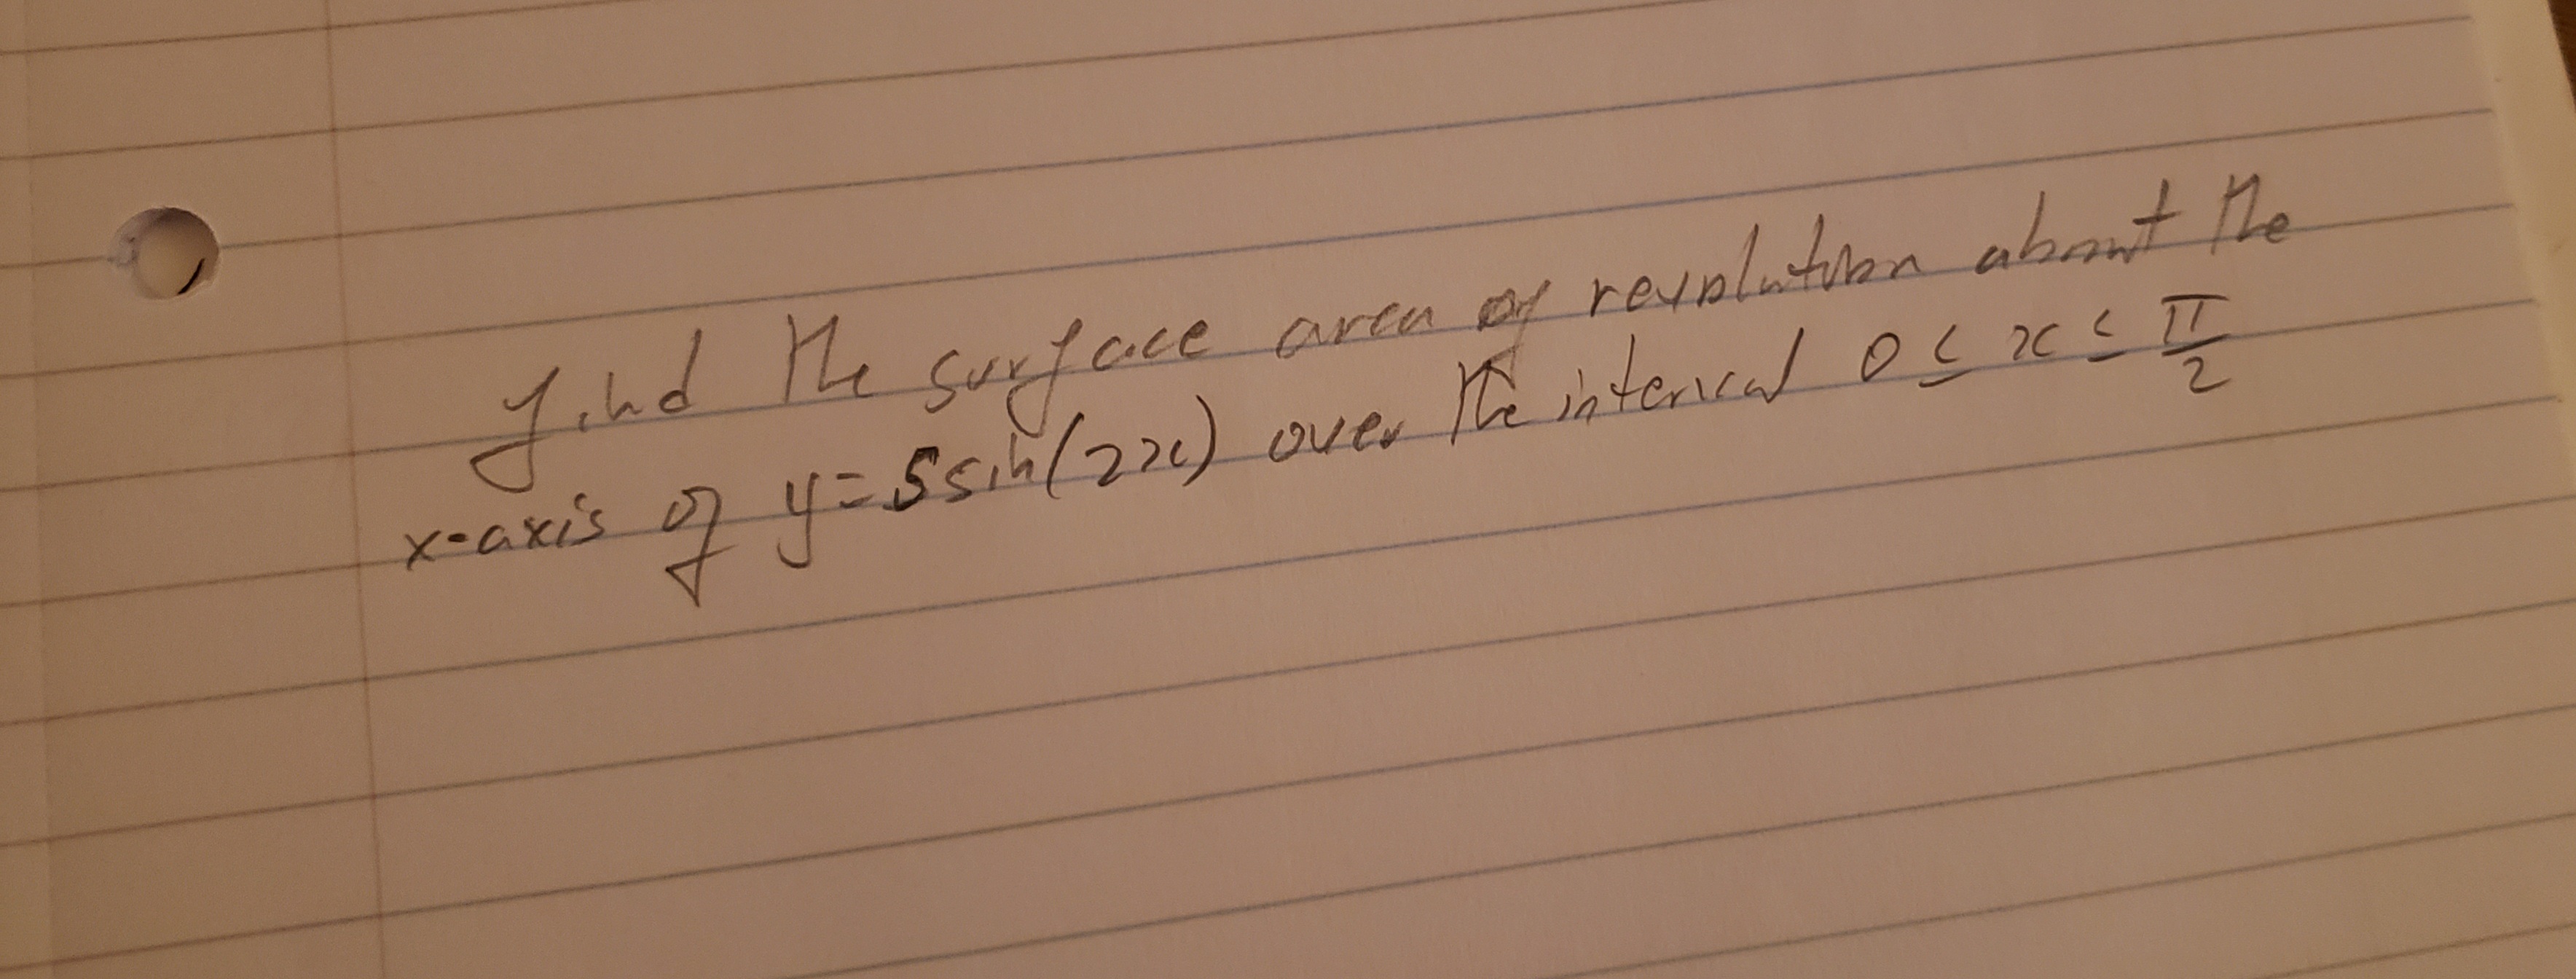 find the surface area of revolution about the
x-axis of y=5sin(2x) over the interval 0 ≤ x ≤ π/2